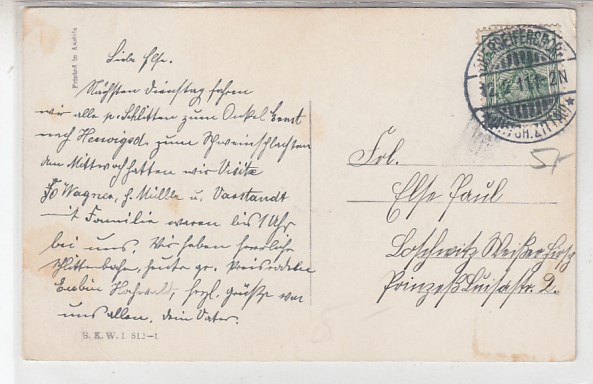 Printed in Austria
Liebe Else.
Nächsten Dienstag fahren
wir alle p. Schlitten zum Onkel Ernst
nach zum Schweinschlachten
am Mittwoch hatten wir Visite
Wagner, H. Müller u. Vorstandt
mit Familie waren bis 1 Uhr
bei uns. Wir haben herrliche
Schlittenbahn, heute gr. Preisrodeln
herzl. Grüße von
uns allen. Dein Vater.
B. K. W. I. 812-1
OBERSEIFERSDORF
12.2.11. 2N
Frl.
Else Paul
Loschwitz Weißer Hirsch
Prinzeß Luisastr. 2.
5-